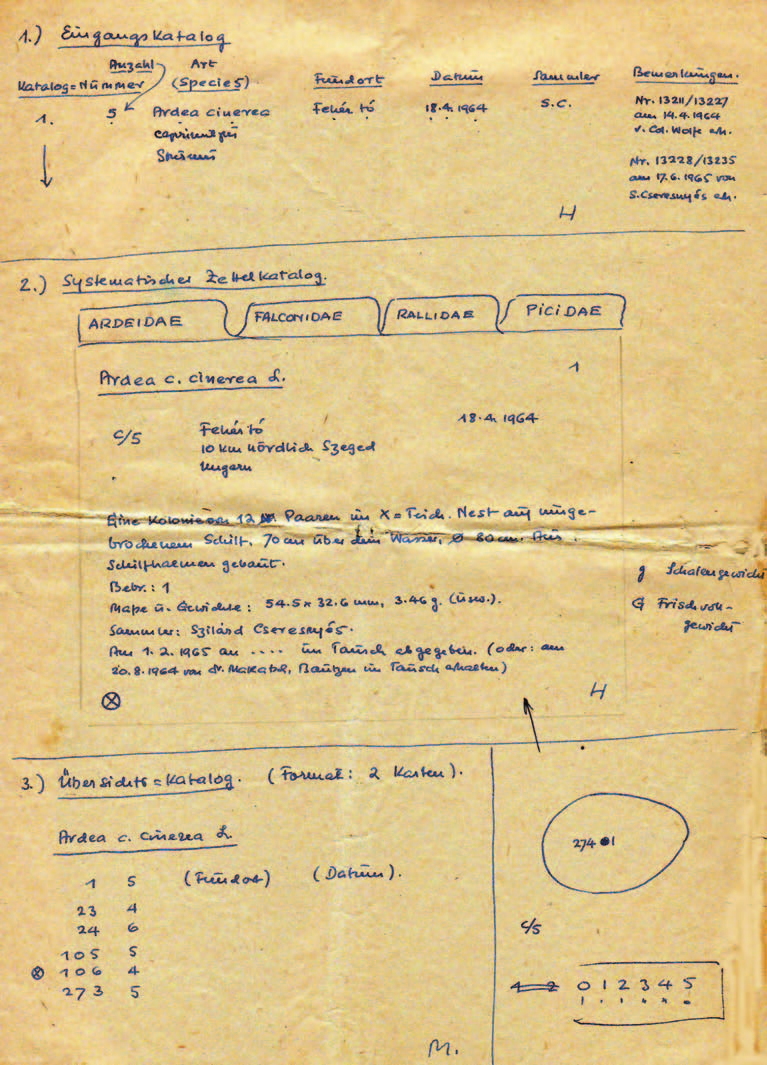 1.) Eingangskatalog
Anzahl Art
Katalog=Nummer (Species) Fundort Datum Sammler Bemerkungen.
1. 5 Ardea cinerea Fehér tó 18.4.1964 S.C. Nr. 13211/13227
am 14.4.1964
v. Col. Wolfe erh.
Nr. 13228/13235
am 17.6.1965 von
S. Cseresnyés erh.
H
2.) Systematischer Zettelkatalog.
ARDEIDAE FALCONIDAE RALLIDAE PICIDAE
Ardea c. cinerea L. 1
c/5 Fehér tó 18.4.1964
10 km nördlich Szeged
Ungarn
Eine Kolonie von 12 Paaren im X=Teich. Nest auf umge-
brochenem Schilf, 70 cm über dem Wasser, ø 80 cm. Aus
Schilfhalmen gebaut.
Bebr.: 1
Mape u. Gewichte: 54.5 x 32.6 mm, 3.46 g. (usw.).
Sammler: Szilárd Cseresnyés.
Am 1.2.1965 an .... im Tausch abgegeben. (oder: am
20.8.1964 von dr. Makatsch, Bautzen im Tausch erhalten)
⊗ H
g Schalengewicht
G Frischvoll-
gewicht
3.) Übersichts=katalog. (Format: 2 Karten).
Ardea c. cinerea L.
1 5 (Fundort) (Datum).
23 4
24 6
105 5
⊗ 106 4
273 5
M.
274 1
c/5
0 1 2 3 4 5